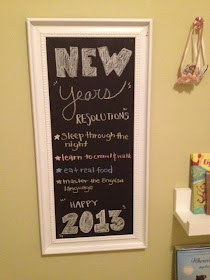 NEW
"Years"
RESOLUTIONS
★ Sleep through the
night
★ learn to crawl & walk
★ eat real food
★ master the English
language
HAPPY
"2013"